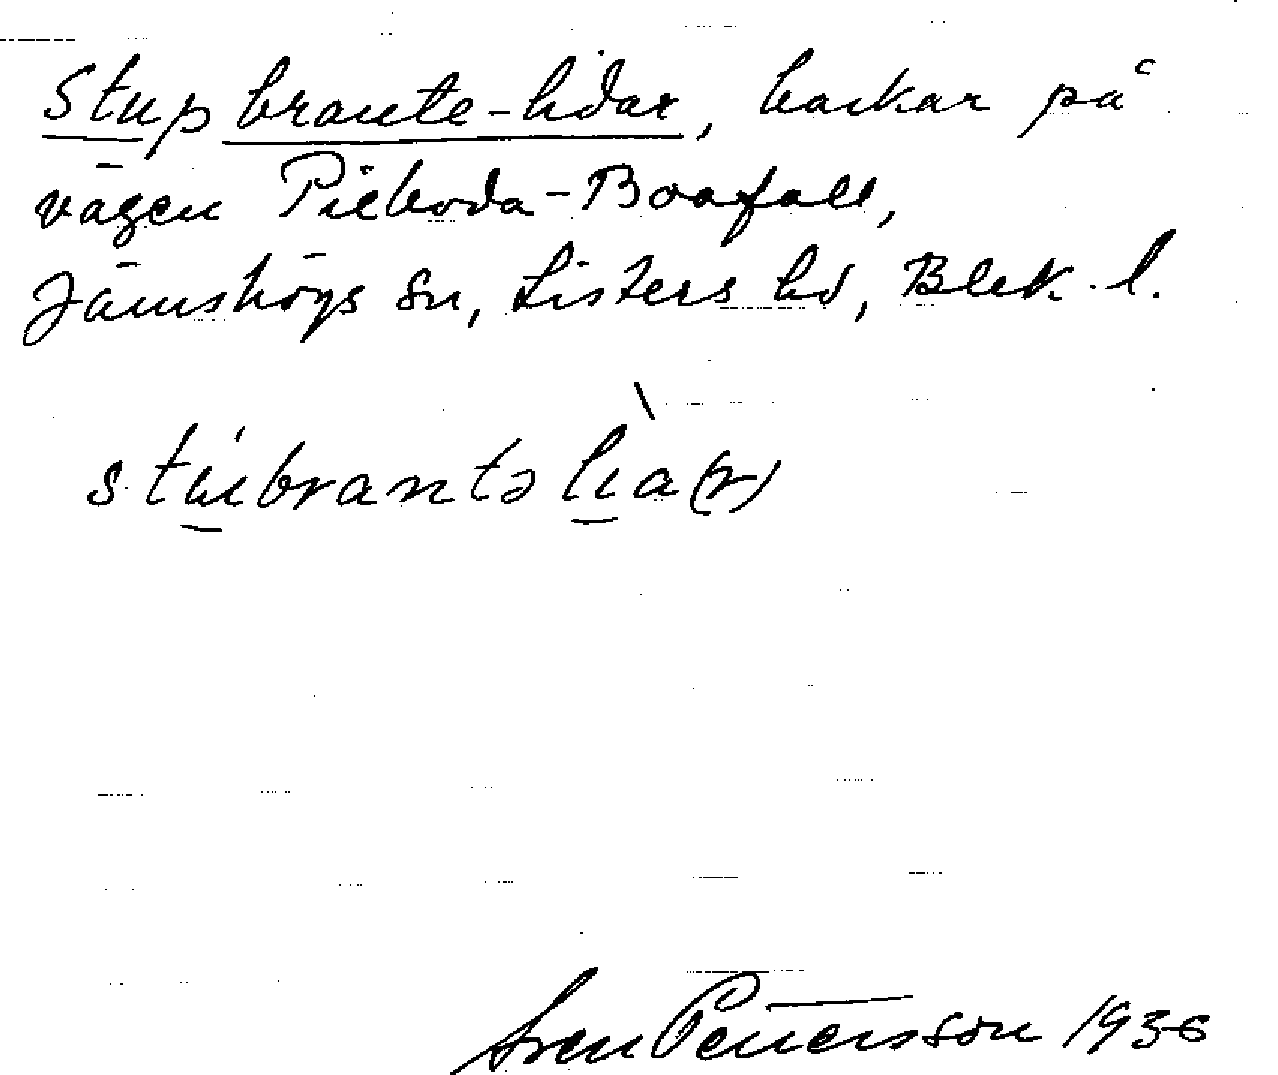 Stupbrante-lidar, backar på
vägen Pieboda-Boafall,
Jämshögs sn, Listers hd, Blek. l.
stúibrantə lıa(r)
Sven Pettersson 1936